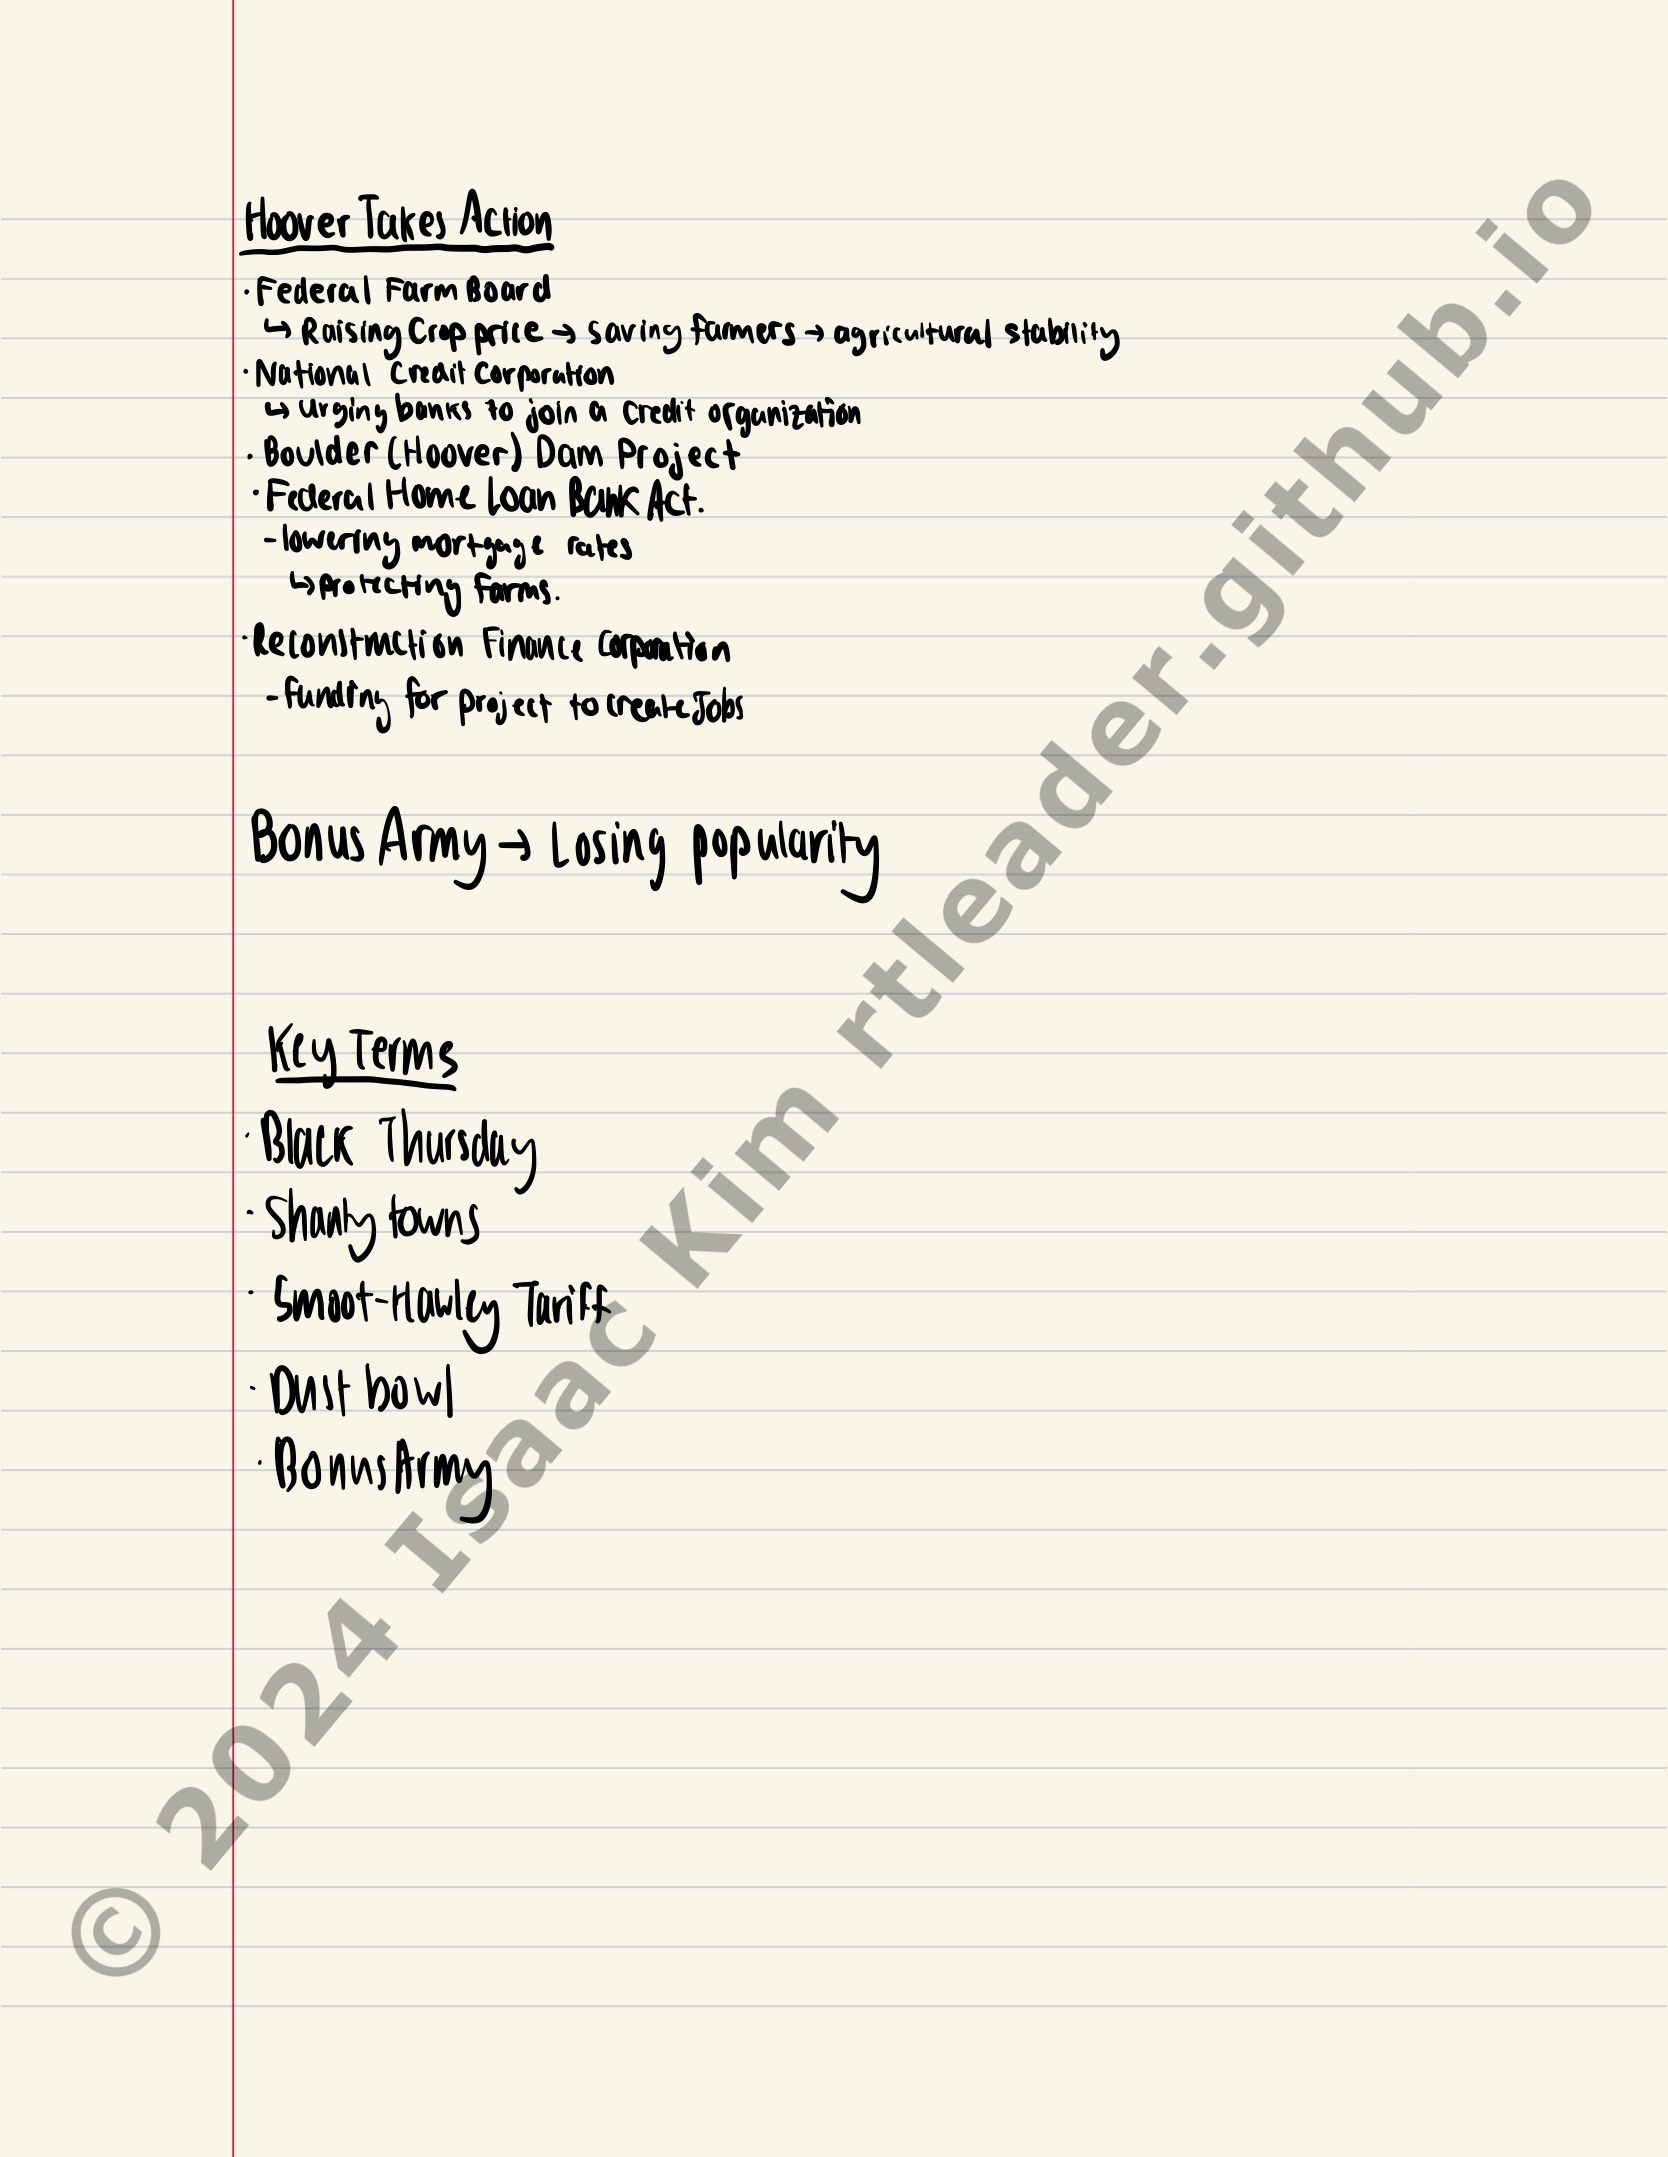 Hoover Takes Action
· Federal Farm Board
↳ Raising Crop price → saving farmers → agricultural stability
· National Credit Corporation
↳ urging banks to join a credit organization
· Boulder (Hoover) Dam Project
· Federal Home Loan Bank Act.
- lowering mortgage rates
↳ protecting farms.
· Reconstruction Finance Corporation
- funding for project to create Jobs
Bonus Army → Losing popularity
Key Terms
· Black Thursday
· Shanty towns
· Smoot-Hawley Tariff
· Dust bowl
· Bonus Army
© 2024 Isaac Kim rtleader.github.io